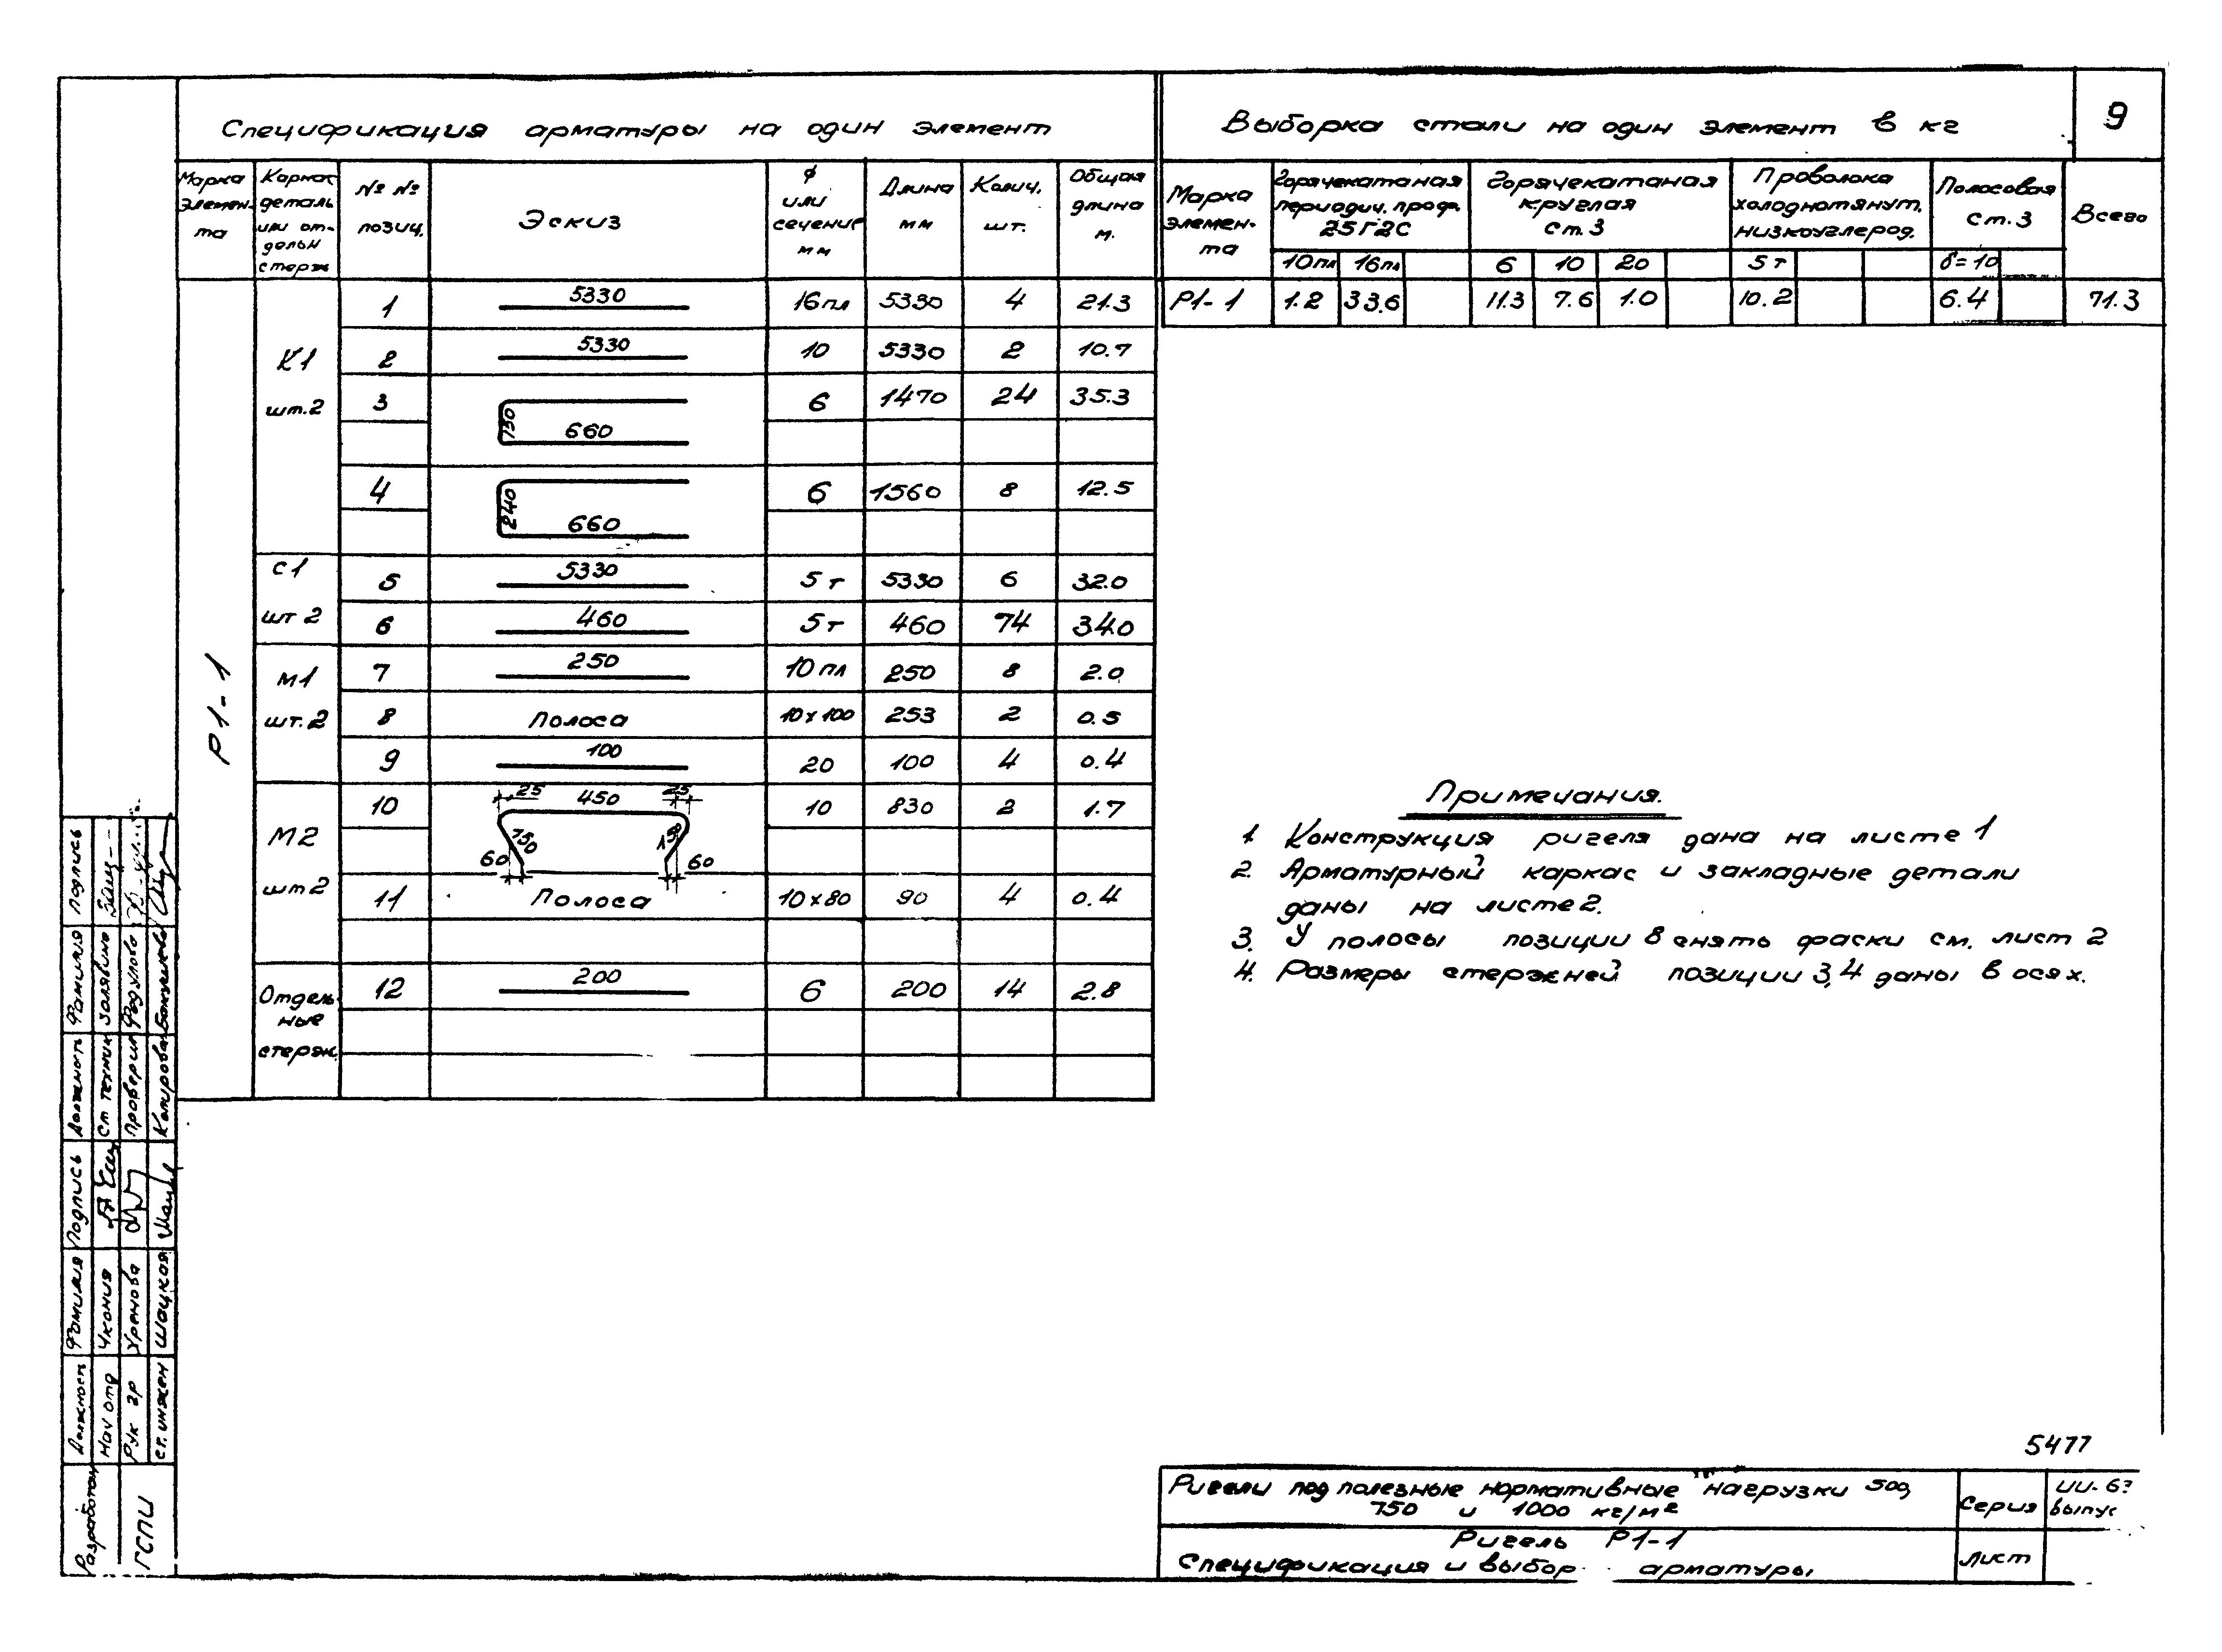 Спецификация арматуры на один элемент
Выборка стали на один элемент в кг
9
Марка элемен-та | Каркас деталь или от-дельн стерж | №№ позиц. | Эскиз | ф или сечение мм | Длина мм | Колич. шт. | Общая длина м.
Р1-1
К1 шт.2
1 | 5330 | 16пл | 5330 | 4 | 21.3
2 | 5330 | 10 | 5330 | 2 | 10.7
3 | 150 660 | 6 | 1470 | 24 | 35.3
4 | 240 660 | 6 | 1560 | 8 | 12.5
С1 шт 2
5 | 5330 | 5т | 5330 | 6 | 32.0
6 | 460 | 5т | 460 | 74 | 34.0
М1 шт.2
7 | 250 | 10пл | 250 | 8 | 2.0
8 | Полоса | 10х100 | 253 | 2 | 0.5
9 | 100 | 20 | 100 | 4 | 0.4
М2 шт 2
10 | 25 450 25 150 150 60 60 | 10 | 830 | 2 | 1.7
11 | Полоса | 10х80 | 90 | 4 | 0.4
Отдель ные стерж.
12 | 200 | 6 | 200 | 14 | 2.8
Марка элемен-та | Горячекатаная периодич. проф. 25Г2С | Горячекатаная круглая Ст.3 | Проволока холоднотянут. низкоуглерод. | Полосовая Ст.3 | Всего
10пл | 16пл | 6 | 10 | 20 | 5т | δ=10
Р1-1 | 1.2 | 33.6 | 11.3 | 7.6 | 1.0 | 10.2 | 6.4 | 71.3
Примечания.
1. Конструкция ригеля дана на листе 1
2. Арматурный каркас и закладные детали
даны на листе 2.
3. У полосы позиции 8 снять фаски см. лист 2
4. Размеры стержней позиции 3,4 даны в осях.
Должность Фамилия Подпись
Ст техник Золявина
Проверил Федулова
Копировал
Должность Фамилия Подпись
Нач отд Чкония
Рук гр Хренова
Ст. инжен Шацкая
Разработан
ГСПИ
5477
Ригели под полезные нормативные нагрузки 500,
750 и 1000 кг/м²
Серия
ИИ-6
выпус
Ригель Р1-1
Спецификация и выбор арматуры
Лист